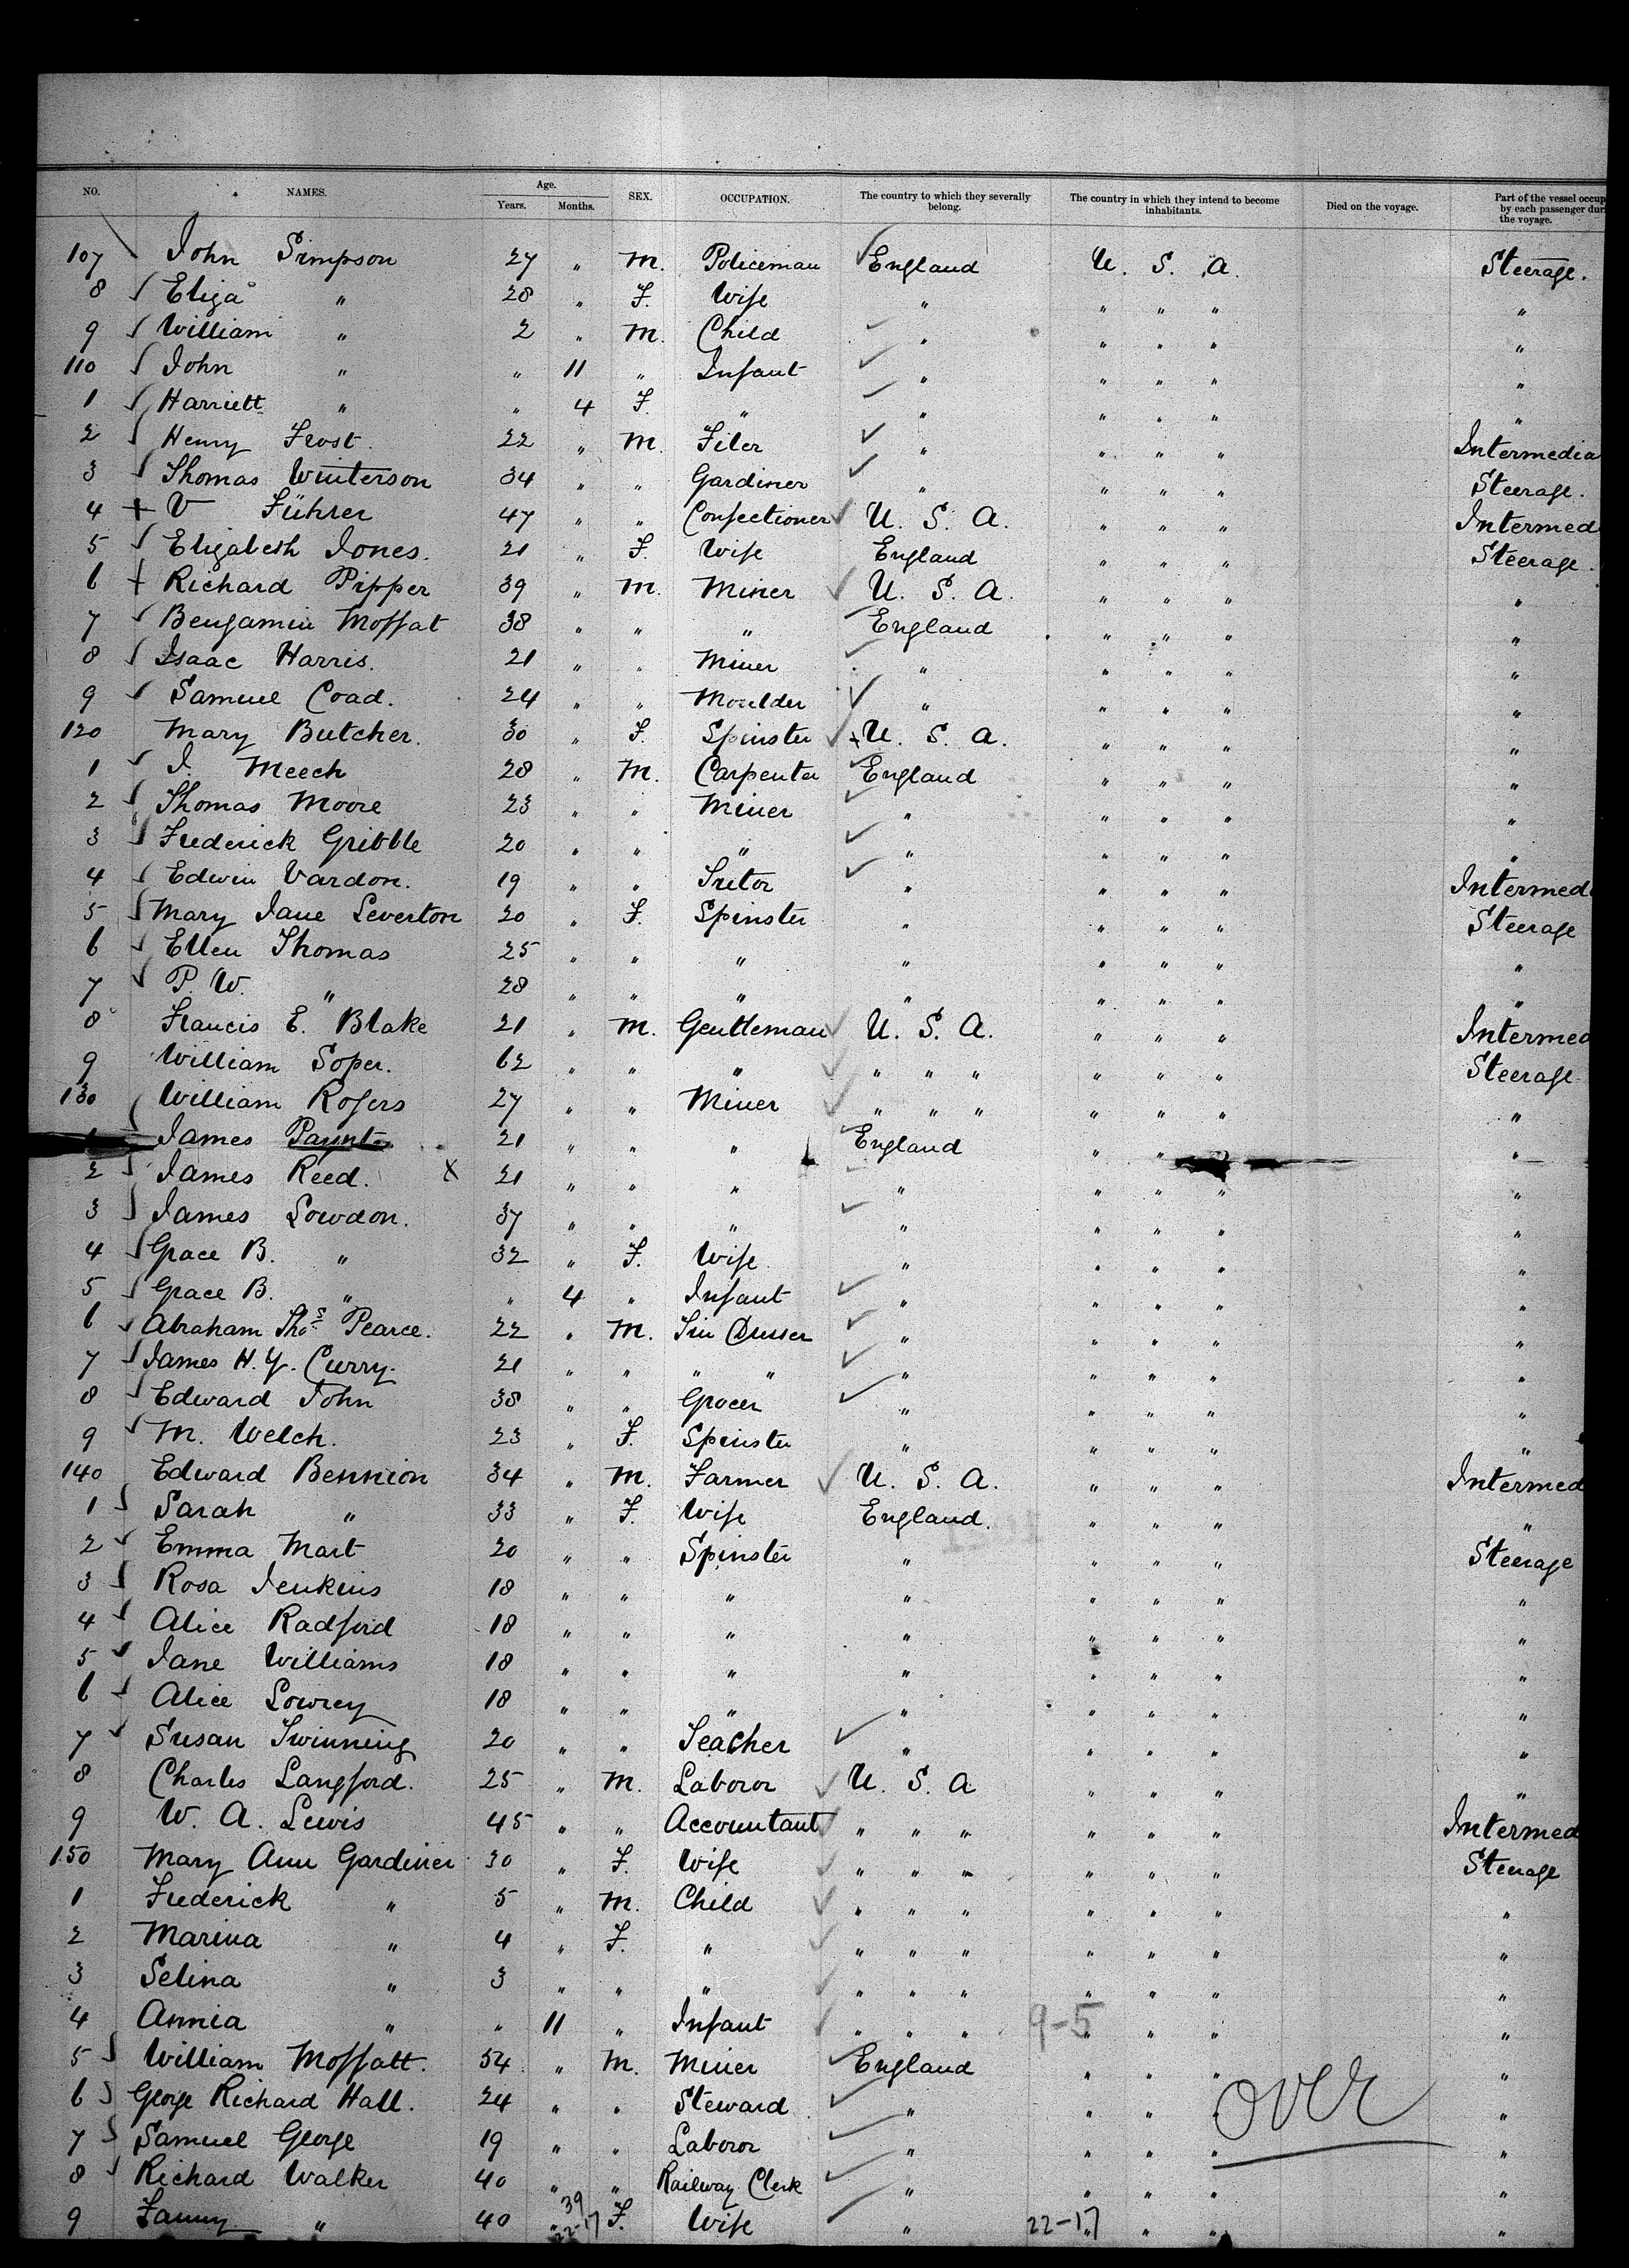 NO. NAMES. Age. Years. Months. SEX. OCCUPATION. The country to which they severally belong. The country in which they intend to become inhabitants. Died on the voyage. Part of the vessel occup by each passenger dur the voyage.
107 John Simpson 27 " M. Policeman England U. S. A. Steerage.
8 Eliza " 28 " F. Wife " " " " "
9 William " 2 " M. Child " " " " "
110 John " " 11 " Infant " " " " "
1 Harriett " " 4 F. " " " " " "
2 Henry Frost. 22 " M. Filer " " " " Intermedia
3 Thomas Winterson 34 " " Gardiner " " " " Steerage.
4 + V Führer 47 " " Confectioner U. S. A. " " " Intermed
5 Elizabeth Jones. 21 " F. Wife England " " " Steerage.
6 + Richard Pipper 39 " M. Miner U. S. A. " " " "
7 Benjamin Moffat 38 " " " England " " " "
8 Isaac Harris. 21 " " Miner " " " " "
9 Samuel Coad. 24 " " Moulder " " " " "
120 Mary Butcher. 30 " F. Spinster + U. S. A. " " " "
1 J. Meech 28 " M. Carpenter England " " " "
2 Thomas Moore 23 " " Miner " " " " "
3 Frederick Gribble 20 " " " " " " " "
4 Edwin Vardon. 19 " " " " " " Intermed
5 Mary Jane Leverton 20 " F. Spinster " " " " Steerage
6 Ellen Thomas 25 " " " " " " " "
7 P. W. " 28 " " " " " " " "
8 Francis E. Blake 21 " M. Gentleman U. S. A. " " " Intermed
9 William Soper. 62 " " " " " " " " " Steerage
130 William Rogers 27 " " Miner " " " " " " "
James Paynte 21 " " " England " " "
2 James Reed. X 21 " " " " " " " "
3 James Lowdon. 37 " " " " " " " "
4 Grace B. " 32 " F. Wife " " " " "
5 Grace B. " " 4 " Infant " " " " "
6 Abraham Thos. Pearce. 22 " M. Tin Dresser " " " " "
7 James H. Y. Curry. 21 " " " " " " " " "
8 Edward John 38 " " Grocer " " " " "
9 M. Welch. 23 " F. Spinster " " " " "
140 Edward Bennion 34 " M. Farmer U. S. A. " " " Intermed
1 Sarah " 33 " F. Wife England. " " " "
2 Emma Mart 20 " " Spinster " " " " Steerage
3 Rosa Jenkins 18 " " " " " " " "
4 Alice Radford 18 " " " " " " " "
5 Jane Williams 18 " " " " " " " "
6 Alice Lowrey 18 " " " " " " " "
7 Susan Twinning 20 " " Teacher " " " " "
8 Charles Langford. 25 " M. Laboror U. S. A " " " "
9 W. A. Lewis 45 " " Accountant " " " " " " Intermed
150 Mary Ann Gardiner 30 " F. Wife " " " " " " Steerage
1 Frederick " 5 " M. Child " " " " " " "
2 Marina " 4 " F. " " " " " " " "
3 Selina " 3 " " " " " " " " " "
4 Annia " " 11 " Infant " " " 9-5 " " " "
5 William Moffatt. 54 " M. Miner England " " " "
6 George Richard Hall. 24 " " Steward " " " " "
over
7 Samuel George 19 " " Laboror " " " " "
8 Richard Walker 40 " " Railway Clerk " " " " "
9 Fanny " 40 " 39 22-17 F. Wife " 22-17 " " " "